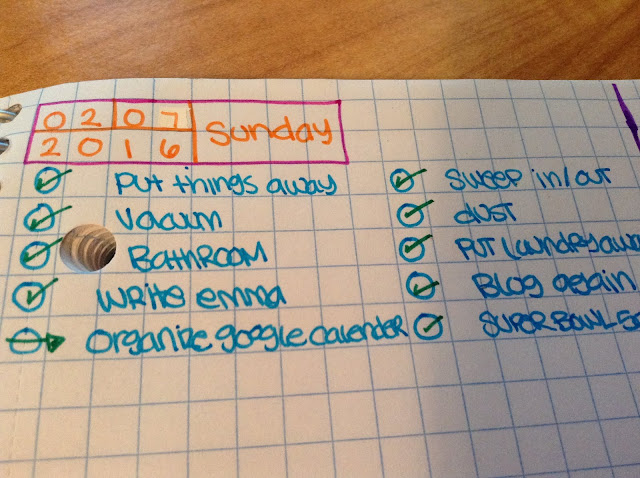 02 07 Sunday
2016
Put things away
Vacum
BathROOM
Write emma
Organize google calender
Sweep in/out
dust
Put laundry
Blog again
SUPERBOWL